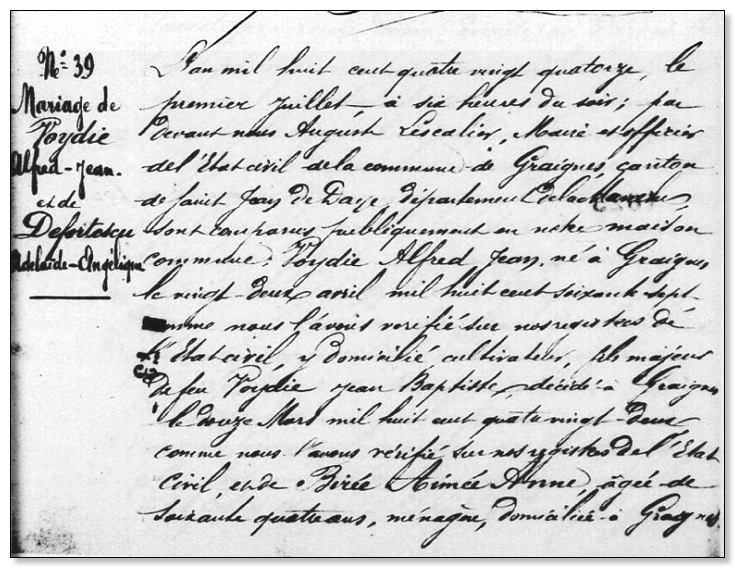 N° 39
Mariage de
Voydie
Alfred-Jean.
et de
Adelaïde-Angélique
L'an mil huit cent quatre vingt quatorze, le
premier Juillet, à six heures du soir; par
devant nous August Lescalier, Maire et officier
de l'Etat civil de la commune de Graignes, canton
de Saint Jean de Daye, département de la Manche
sont comparus publiquement en notre maison
commune: Voydie Alfred Jean, né à Graignes
le vingt-deux avril mil huit cent soixante sept
comme nous l'avons verifié sur nos registres de
l'Etat civil, y domicilié, cultivateur, fils majeur
de feu Voydie Jean Baptiste, décédé à Graignes
le douze Mars mil huit cent quatre vingt-deux
comme nous l'avons vérifié sur nos registres de l'Etat
Civil, et de Birée Aimée Anne, âgée de
soixante quatre ans, ménagère, domiciliée à Graignes